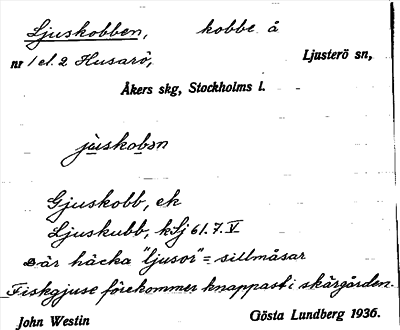 Ljuskobben, kobbe å
nr 1 el. 2 Husarö, Ljusterö sn,
Åkers skg, Stockholms l.
jùskobən
Gjuskobb, ek
Ljuskubb, kSj 61.7.V
Där häcka "ljusor" = sillmåsar
Fiskgjuse förekommer knappast i skärgården.
John Westin Gösta Lundberg 1936.